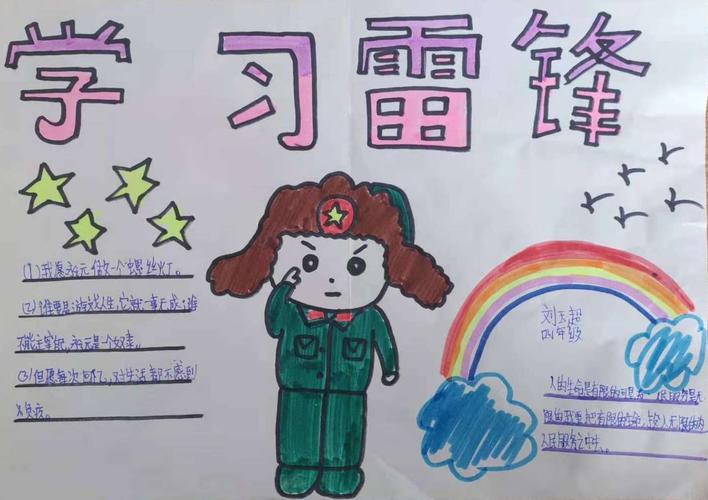 学习雷锋
(1)我愿永元做一个螺丝灯。
(2)谁要是游戏人生,它就一事无成;谁
不能主宰,永元是一个奴隶。
(3)但愿每次回忆,对生活都不感到
负疚。
刘玉超
四年级
人的生命是有限的可是
限的我要把有限的生命,投入无限的为
人民服务之中去。